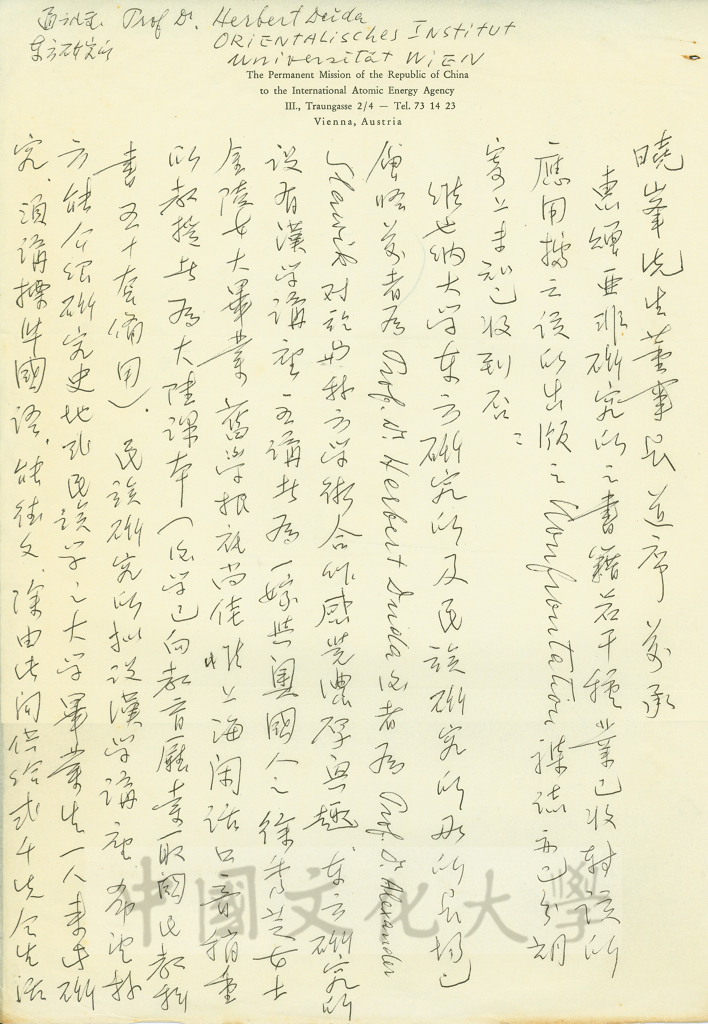 Prof Dr. Herbert Duda
ORIENTALisches INStitut
Universität WiEN
東方研究所
The Permanent Mission of the Republic of China
to the International Atomic Energy Agency
III., Traungasse 2/4 — Tel. 73 14 23
Vienna, Austria
曉峯先生董事長道席 前承
惠贈亞非研究所之書籍若干種業已收轉該所
應用據云該所出版之Confrontation 雜誌亦已分期
寄上未知已收到否：
維也納大学東方研究所及民族研究所兩所長均已
晤前者為 Prof. Dr. Herbert Duda 後者為 Prof. Dr Alexander
Slawik 对於與我方学術合作感覺濃厚興趣，東方研究所
設有漢学講座主講者為一嫁與奧國人之徐 女士
金陵女大畢業 舊学根底尚佳 惟上海閑話口音稍重
所教授者為大陸課本（後学已向教育 國民教科
書五十套備用）. 民族研究所拟設漢学講座，希望我
方能介紹研究史地或民族学之大学畢業生一人來此研
究，須講標準國語，能德文，除由此间供給弍千先令生活
中國文化大學